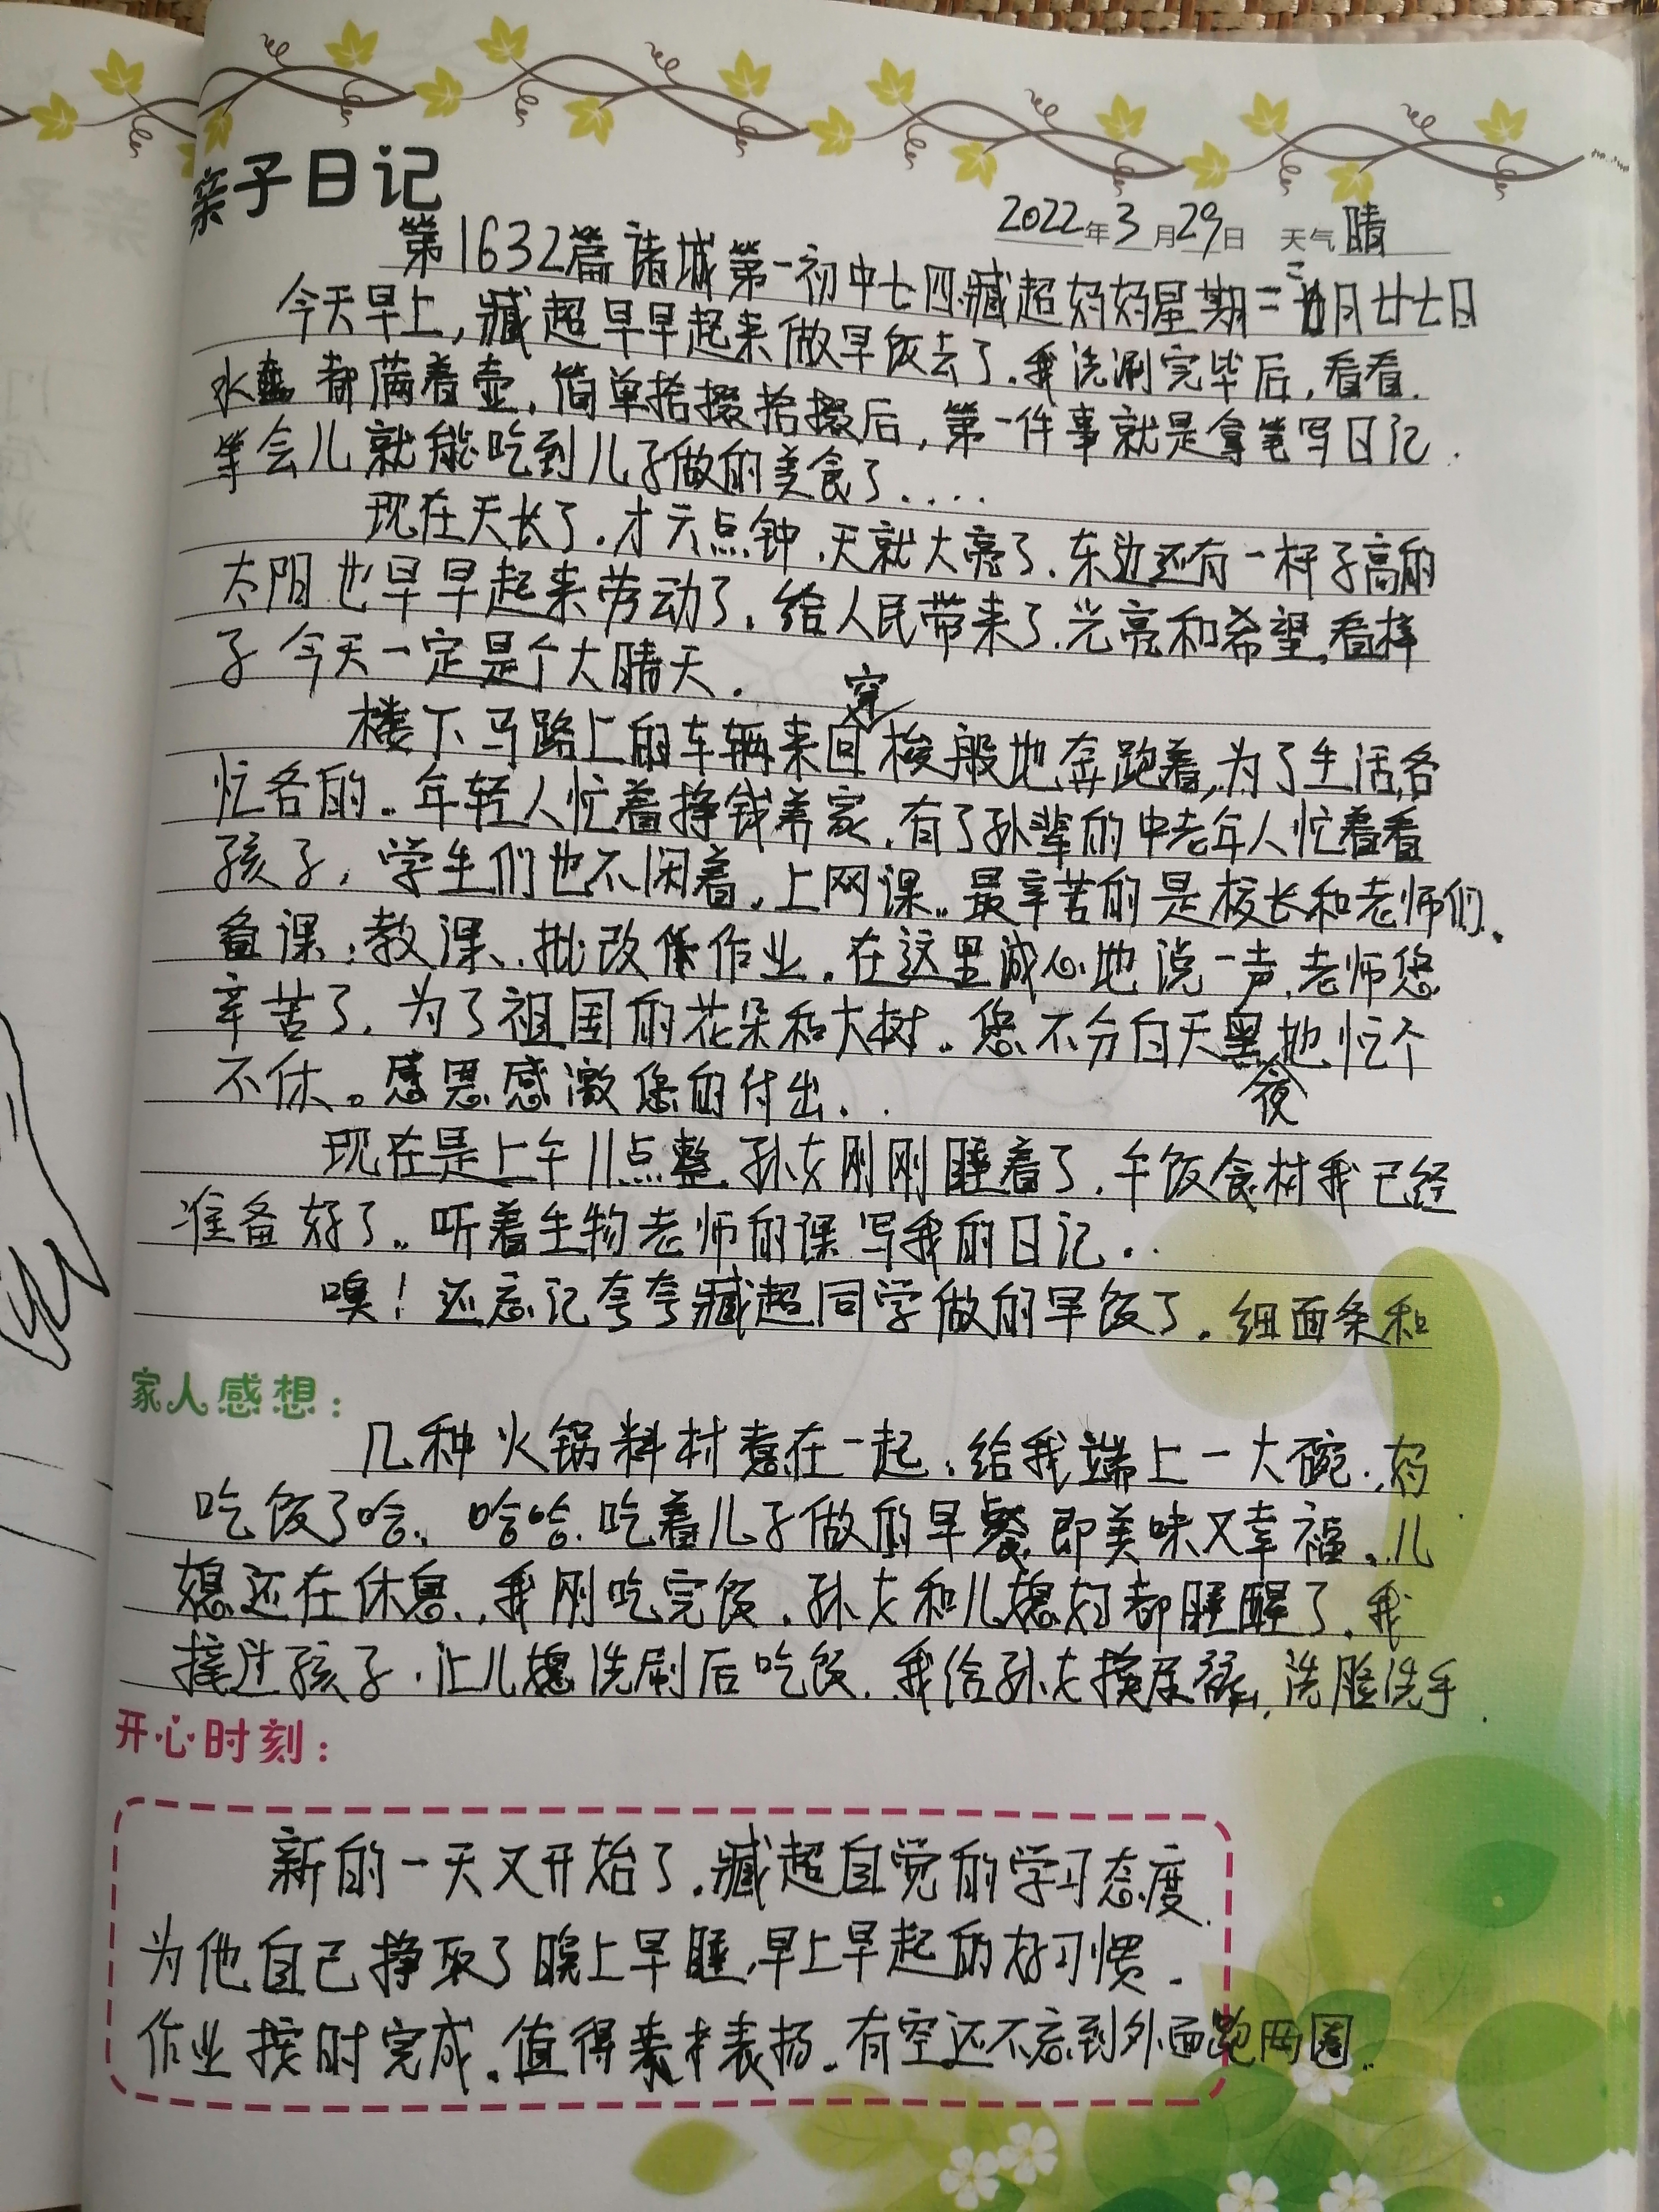 亲子日记
2022年3月29日 天气晴
第1632篇诸城第一初中七四臧超妈妈星期二二月廿七日
今天早上，臧超早早起来做早饭去了.我洗涮完毕后，看看.
水壶都满着壶，简单拾掇拾掇后，第一件事就是拿笔写日记.
等会儿就能吃到儿子做的美食了....
现在天长了.才六点钟,天就大亮了.东边还有一杆子高的
太阳也早早起来劳动了.给人民带来了光亮和希望,看样
子今天一定是个大晴天.
楼下马路上的车辆来回穿梭般地奔跑着,为了生活,各
忙各的。年轻人忙着挣钱养家.有了孙辈的中老年人忙着看
孩子，学生们也不闲着.上网课..最辛苦的是校长和老师们.
备课;教课、.批改作业.在这里诚心地说一声,老师您
辛苦了.为了祖国的花朵和大树..您不分白天黑夜地忙个
不休。感恩感激您的付出..
现在是上午11点整.孙女刚刚睡着了.午饭食材我已经
准备好了..听着生物老师的课写我的日记..
噢！还忘记夸夸臧超同学做的早饭了.细面条和
家人感想：
几种火锅料材煮在一起.给我端上一大碗.妈
吃饭了哈.哈哈.吃着儿子做的早餐即美味又幸福.儿
媳还在休息.我刚吃完饭.孙女和儿媳妇都睡醒了.我
接过孩子.让儿媳洗刷后吃饭.我给孙女换尿裤,洗脸洗手.
开心时刻：
新的一天又开始了.臧超自觉的学习态度.
为他自己挣取了晚上早睡,早上早起的好习惯.
作业按时完成.值得表扬.有空还不忘到外面跑两圈..